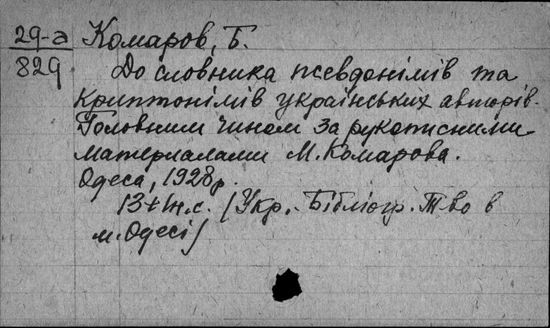 29-а Комаров, Б.
829
До словника псевдонімів та
криптонімів українських авторів.
Головним чином за рукописними
материалами М. Комарова.
Одеса, 1928 р.
13+1н.с. (Укр. Бібліогр. Т-во в
м. Одесі)